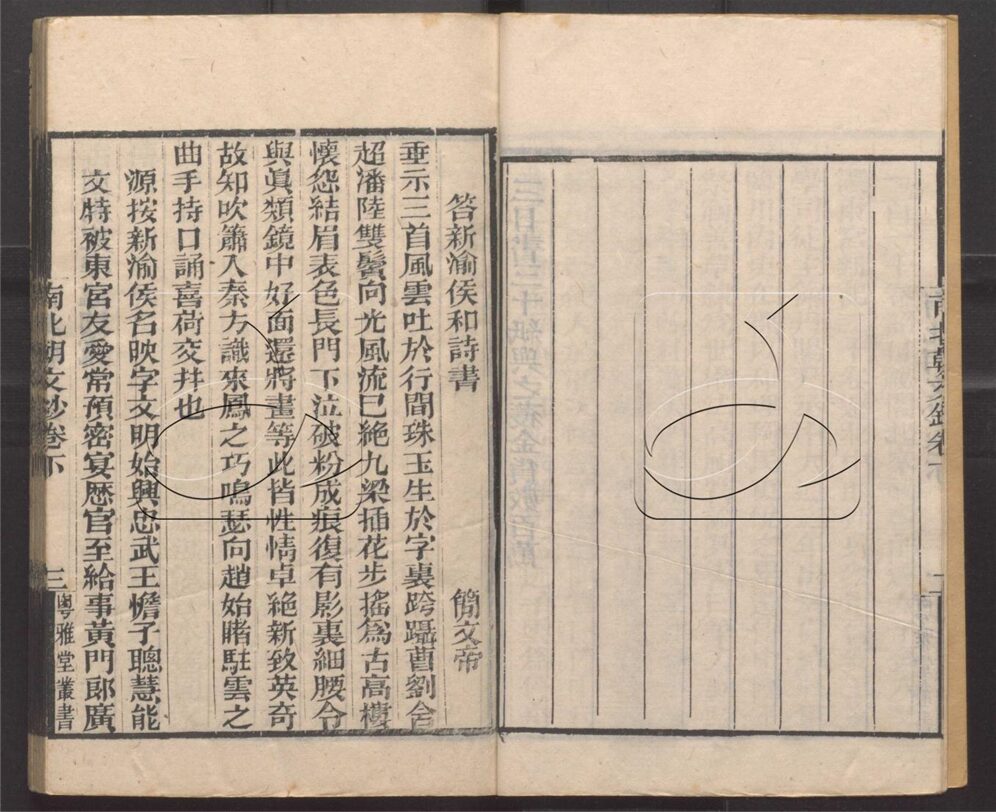 答新渝侯和詩書　簡文帝
垂示三首風雲吐於行間珠玉生於字裏跨躡曹劉含
超潘陸雙鬢向光風流已絕九梁插花步搖爲古高樓
懷怨結眉表色長門下泣破粉成痕復有影裏細腰令
與眞類鏡中好面還將畫等此皆性情卓絕新致英奇
故知吹簫入秦方識來鳳之巧鳴瑟向趙始睹駐雲之
曲手持口誦喜荷交幷也
源按新渝侯名映字文明始興忠武王憺子聰慧能
文特被東宮友愛常預密宴歷官至給事黃門郎廣
南北朝文鈔卷下　三　粤雅堂叢書